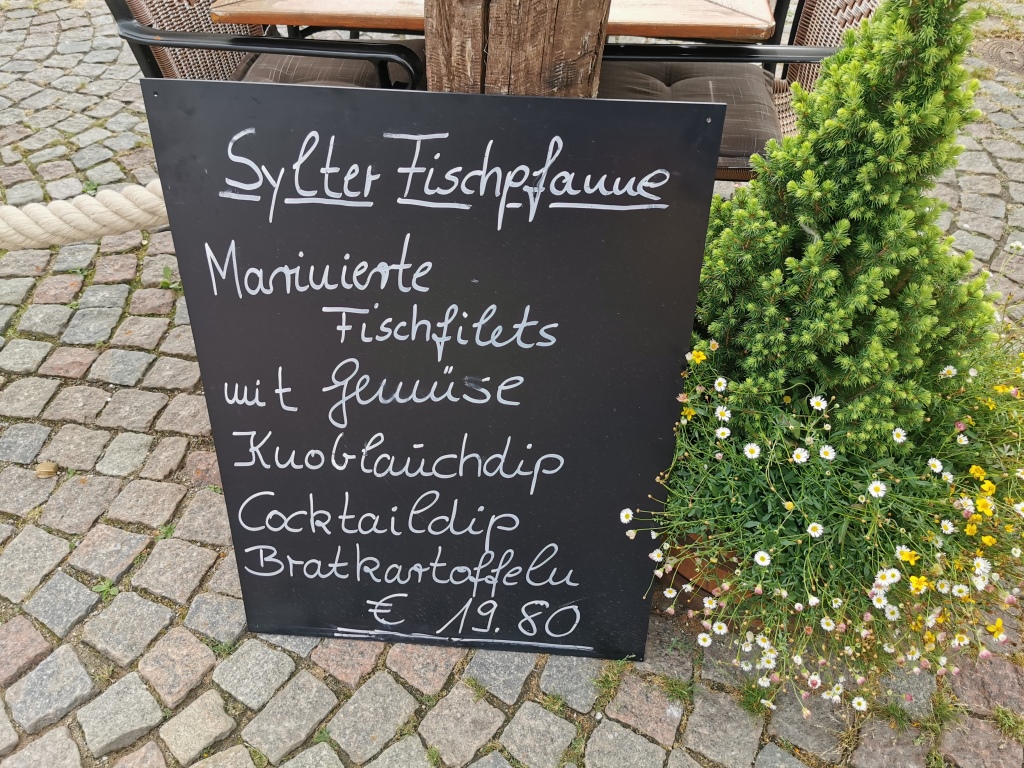 Sylter Fischpfanne
Marinierte
Fischfilets
mit Gemüse
Knoblauchdip
Cocktaildip
Bratkartoffeln
€ 19.80